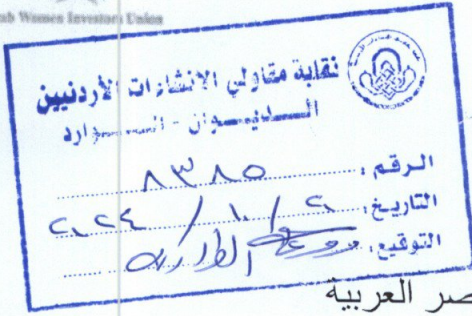 ab Women Investors Union
نقابة مقاولي الانشاءات الأردنيين
الديوان - الوارد
الرقم: ٨٣٨٥
التاريخ: ٢ / ١٠ / ٢٠٢٤
التوقيع:
صر العربية